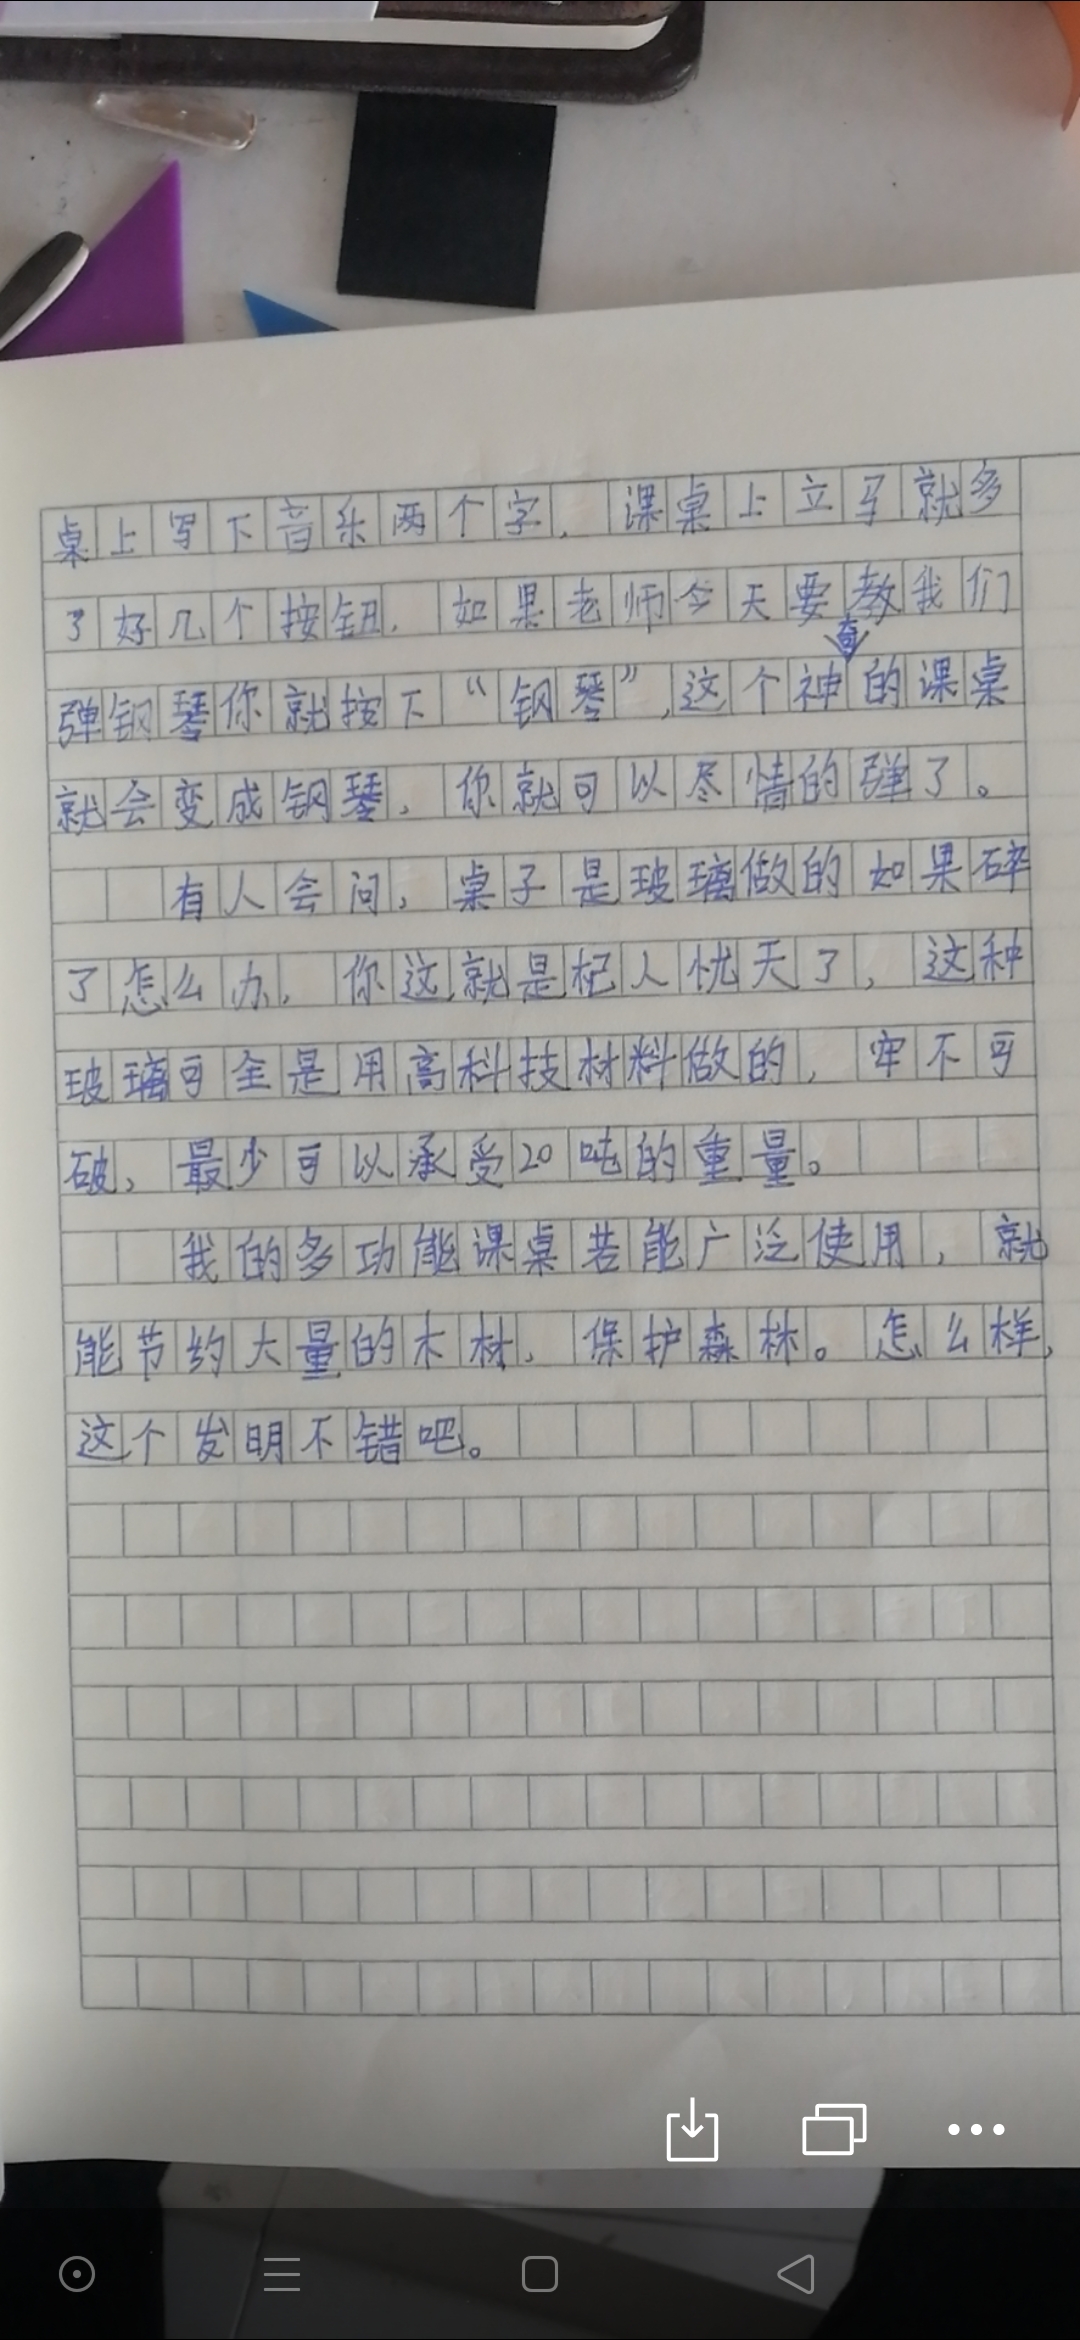 桌上写下音乐两个字，课桌上立马就多
了好几个按钮，如果老师今天要教我们
弹钢琴你就按下“钢琴”，这个神奇的课桌
就会变成钢琴，你就可以尽情的弹了。
有人会问，桌子是玻璃做的如果碎
了怎么办，你这就是杞人忧天了，这种
玻璃可全是用高科技材料做的，牢不可
破，最少可以承受20吨的重量。
我的多功能课桌若能广泛使用，就
能节约大量的木材，保护森林。怎么样，
这个发明不错吧。